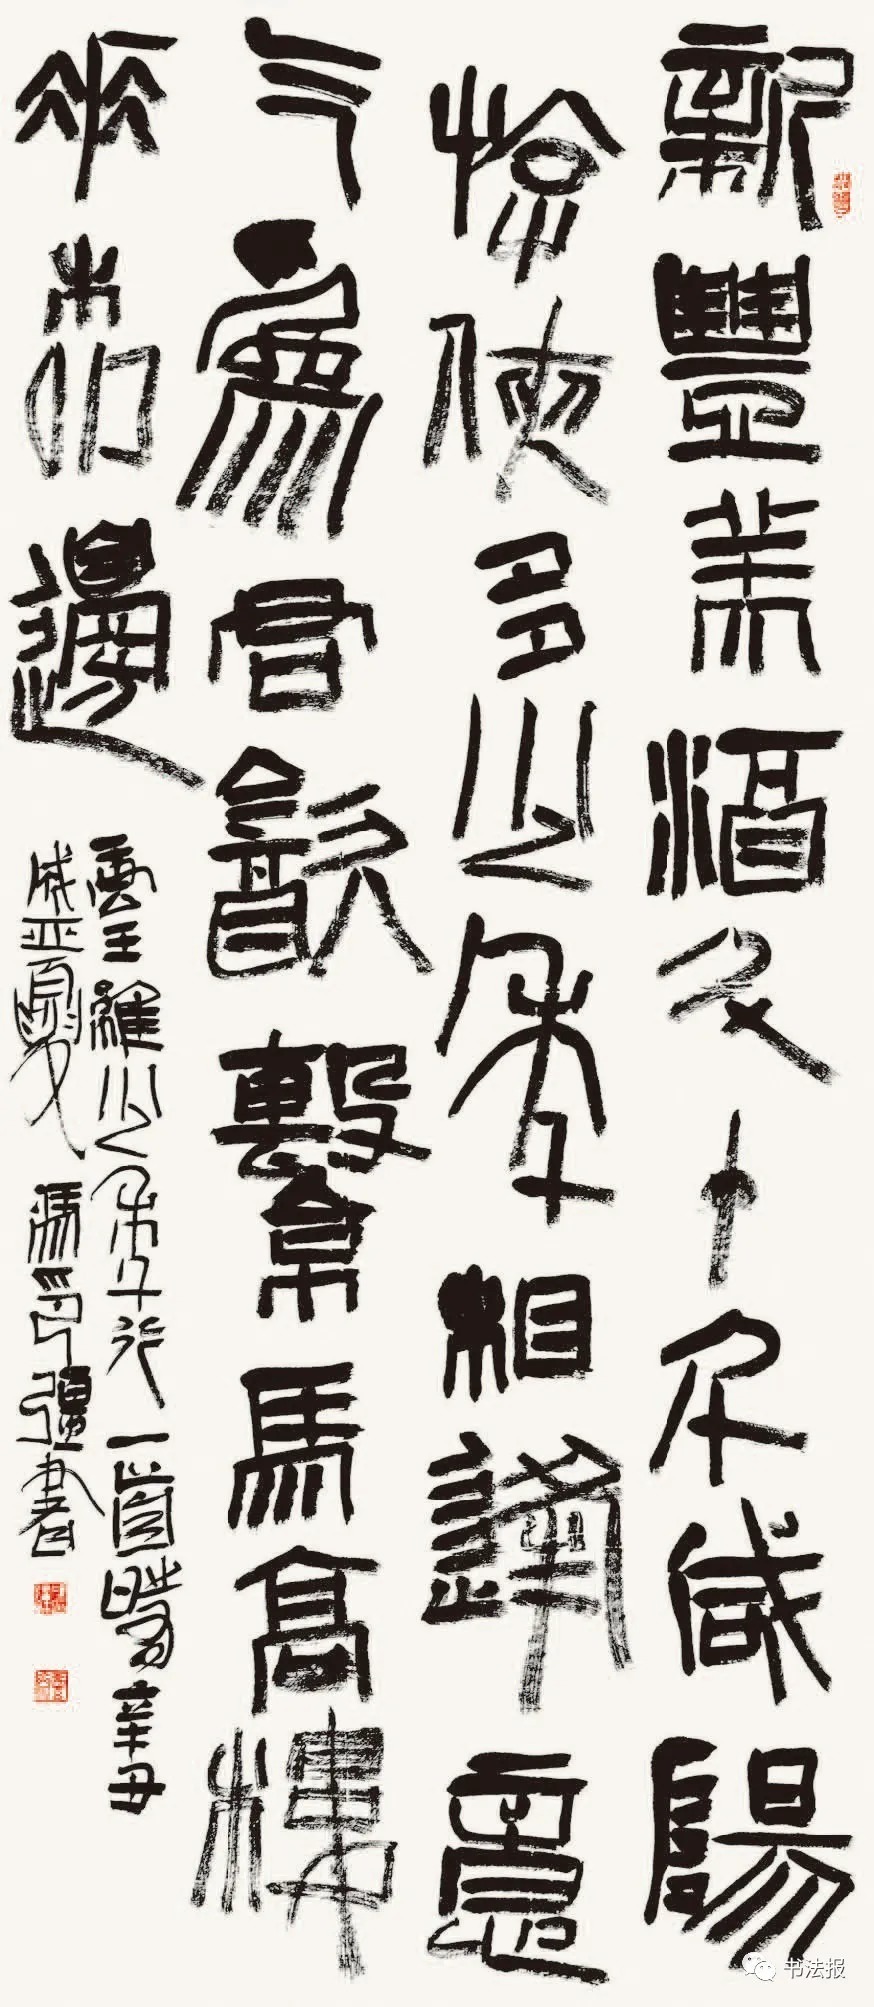 新豐美酒斗十千咸陽
遊俠多少年相逢意
气爲君飲繫馬高樓
垂柳邊
王維少年行一首時辛丑
歲夏馮印強書
书法报